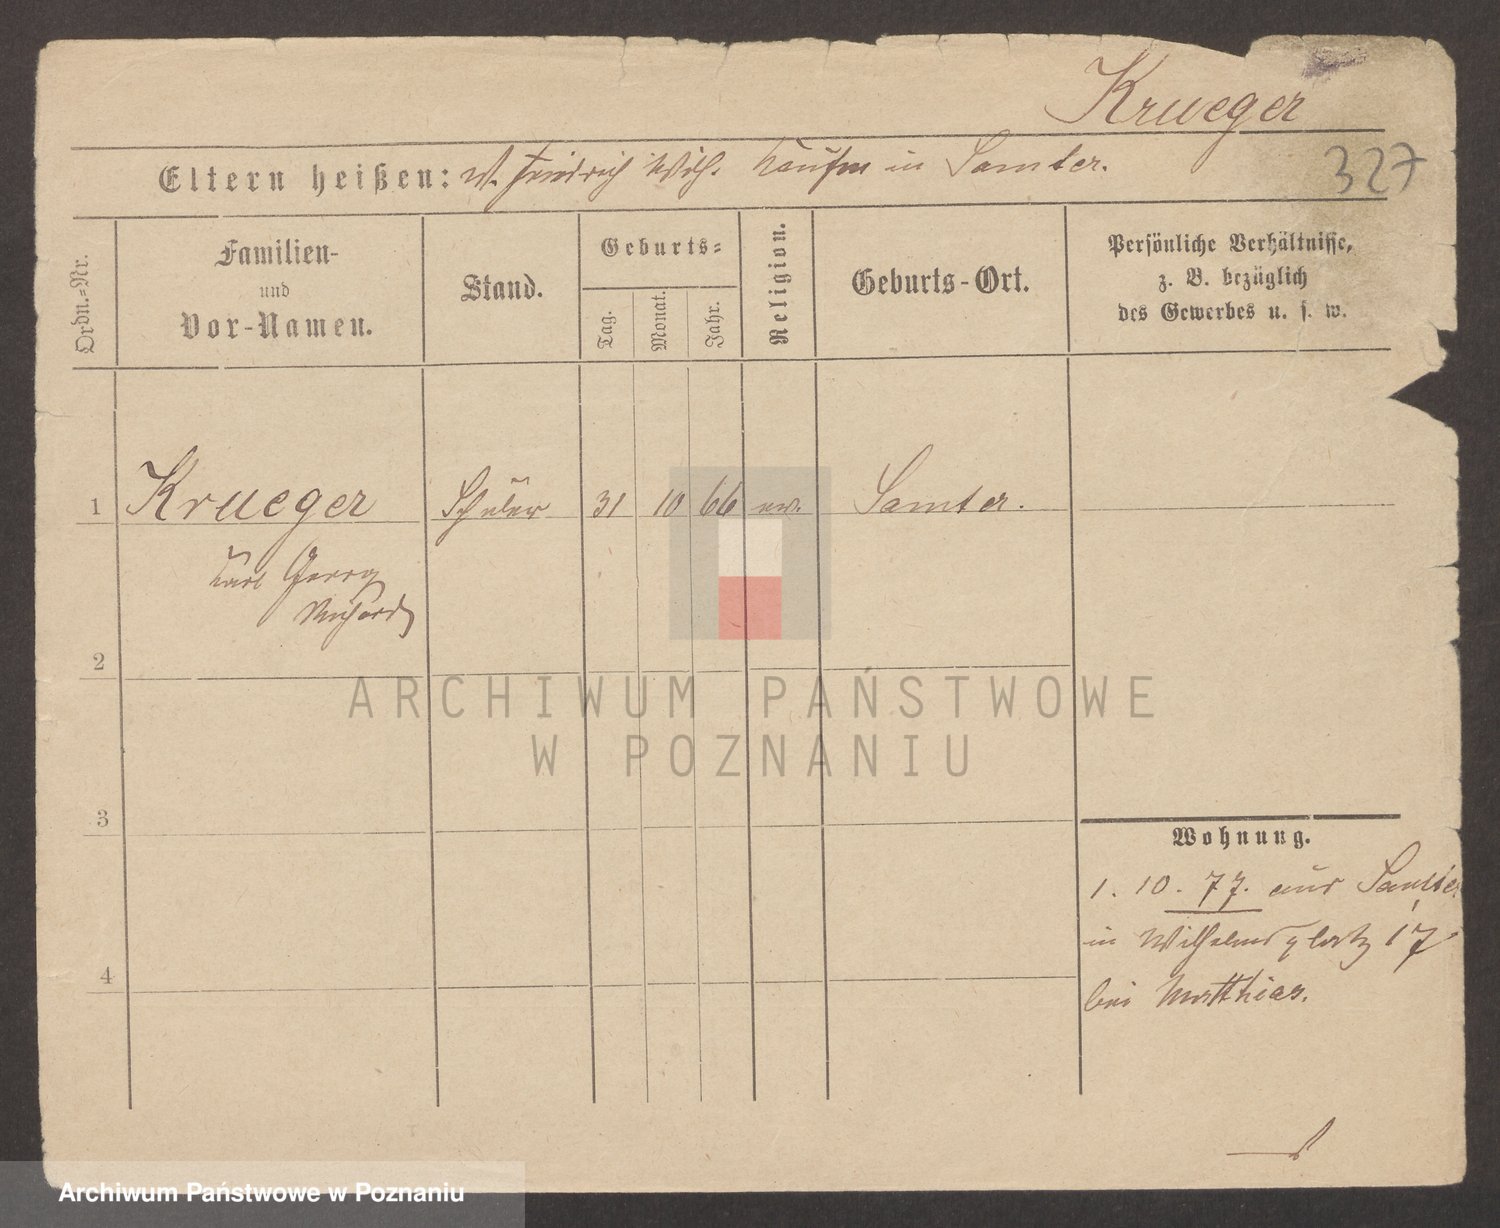 Krueger
327
Eltern heißen: W. Friedrich Wilh. Kaufm in Samter.
Ordn.=Nr.
Familien-
und
Vor-Namen.
Stand.
Geburts=
Tag.
Monat.
Jahr.
Religion.
Geburts-Ort.
Persönliche Verhältnisse,
z. B. bezüglich
des Gewerbes u. s. w.
1 Krueger Schüler 31 10 66 ev. Samter.
Karl Georg
Richard
2
ARCHIWUM PAŃSTWOWE
W POZNANIU
3
Wohnung.
1. 10. 77. aus Samter
in Wilhelmsplatz 17
4
bei Matthias.
Archiwum Państwowe w Poznaniu